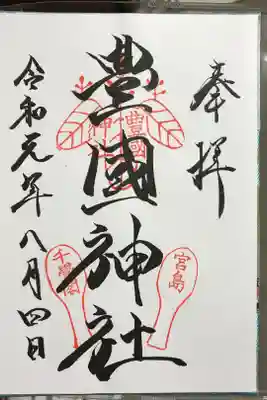 奉拝
豊國神社
令和元年八月四日
豊國
神
宮島
千畳閣